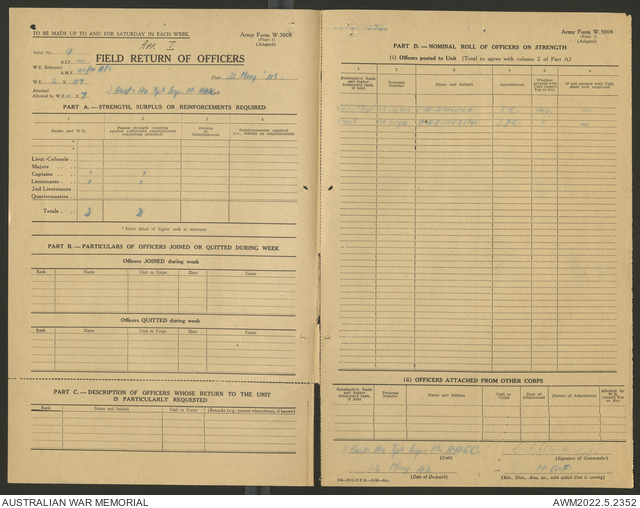 TO BE MADE UP TO AND FOR SATURDAY IN EACH WEEK
Army Form W.3008
(Page 1)
(Adapted)
Serial No. 9
App. I
FIELD RETURN OF OFFICERS
A.I.F.
W.E. Reference
A.M.F.
Date 22 May '43
W.E. 2 X
Attached
Allowed by W.E.
PART A. — STRENGTH, SURPLUS OR REINFORCEMENTS REQUIRED
1 2 3 4
Ranks and W.E.
Posted strength counting against authorised establishment (excluding attached)
Surplus to Establishment
Reinforcements required
Lieut.-Colonels
Majors
Captains
Lieutenants
2nd Lieutenants
Quartermasters
Totals 2 2
* Insert detail of higher rank as necessary
PART B. — PARTICULARS OF OFFICERS JOINED OR QUITTED DURING WEEK
Officers JOINED during week
Rank Name Unit or Corps Date Cause
Officers QUITTED during week
Rank Name Unit or Corps Date Cause
PART C. — DESCRIPTION OF OFFICERS WHOSE RETURN TO THE UNIT IS PARTICULARLY REQUESTED
Rank Name and Initials Unit or Corps (Remarks (e.g., present whereabouts, if known)
Army Form W.3008
(Page 2)
(Adapted)
PART D. — NOMINAL ROLL OF OFFICERS ON STRENGTH
(i) Officers posted to Unit (Total to agree with column 2 of Part A)
1 2 3 4 5 6
Substantive Rank and higher temporary rank, if held
Personal Number
Name and Initials
Appointment
Whether present with Unit (Insert Yes or No)
If not present with Unit, state how employed
(ii) OFFICERS ATTACHED FROM OTHER CORPS
Substantive Rank and higher temporary rank, if held
Personal Number
Name and Initials
Unit or Corps
Date of Attachment
Nature of Attachment
Allowed by W.E. (Insert Yes or No)
(Unit)
(Signature of Commander)
22 May 43
(Date of Despatch)
(Bde., Divn., Area, etc., with which Unit is serving)
AUSTRALIAN WAR MEMORIAL
AWM2022.5.2352